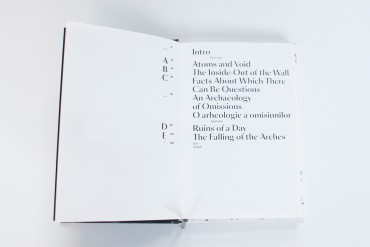 A
B
C
D
E
Intro
Atoms and Void
The Inside-Out of the Wall
Facts About Which There
Can Be Questions
An Archaeology
of Omissions
O arheologie a omisiunilor
Ruins of a Day
The Falling of the Arches